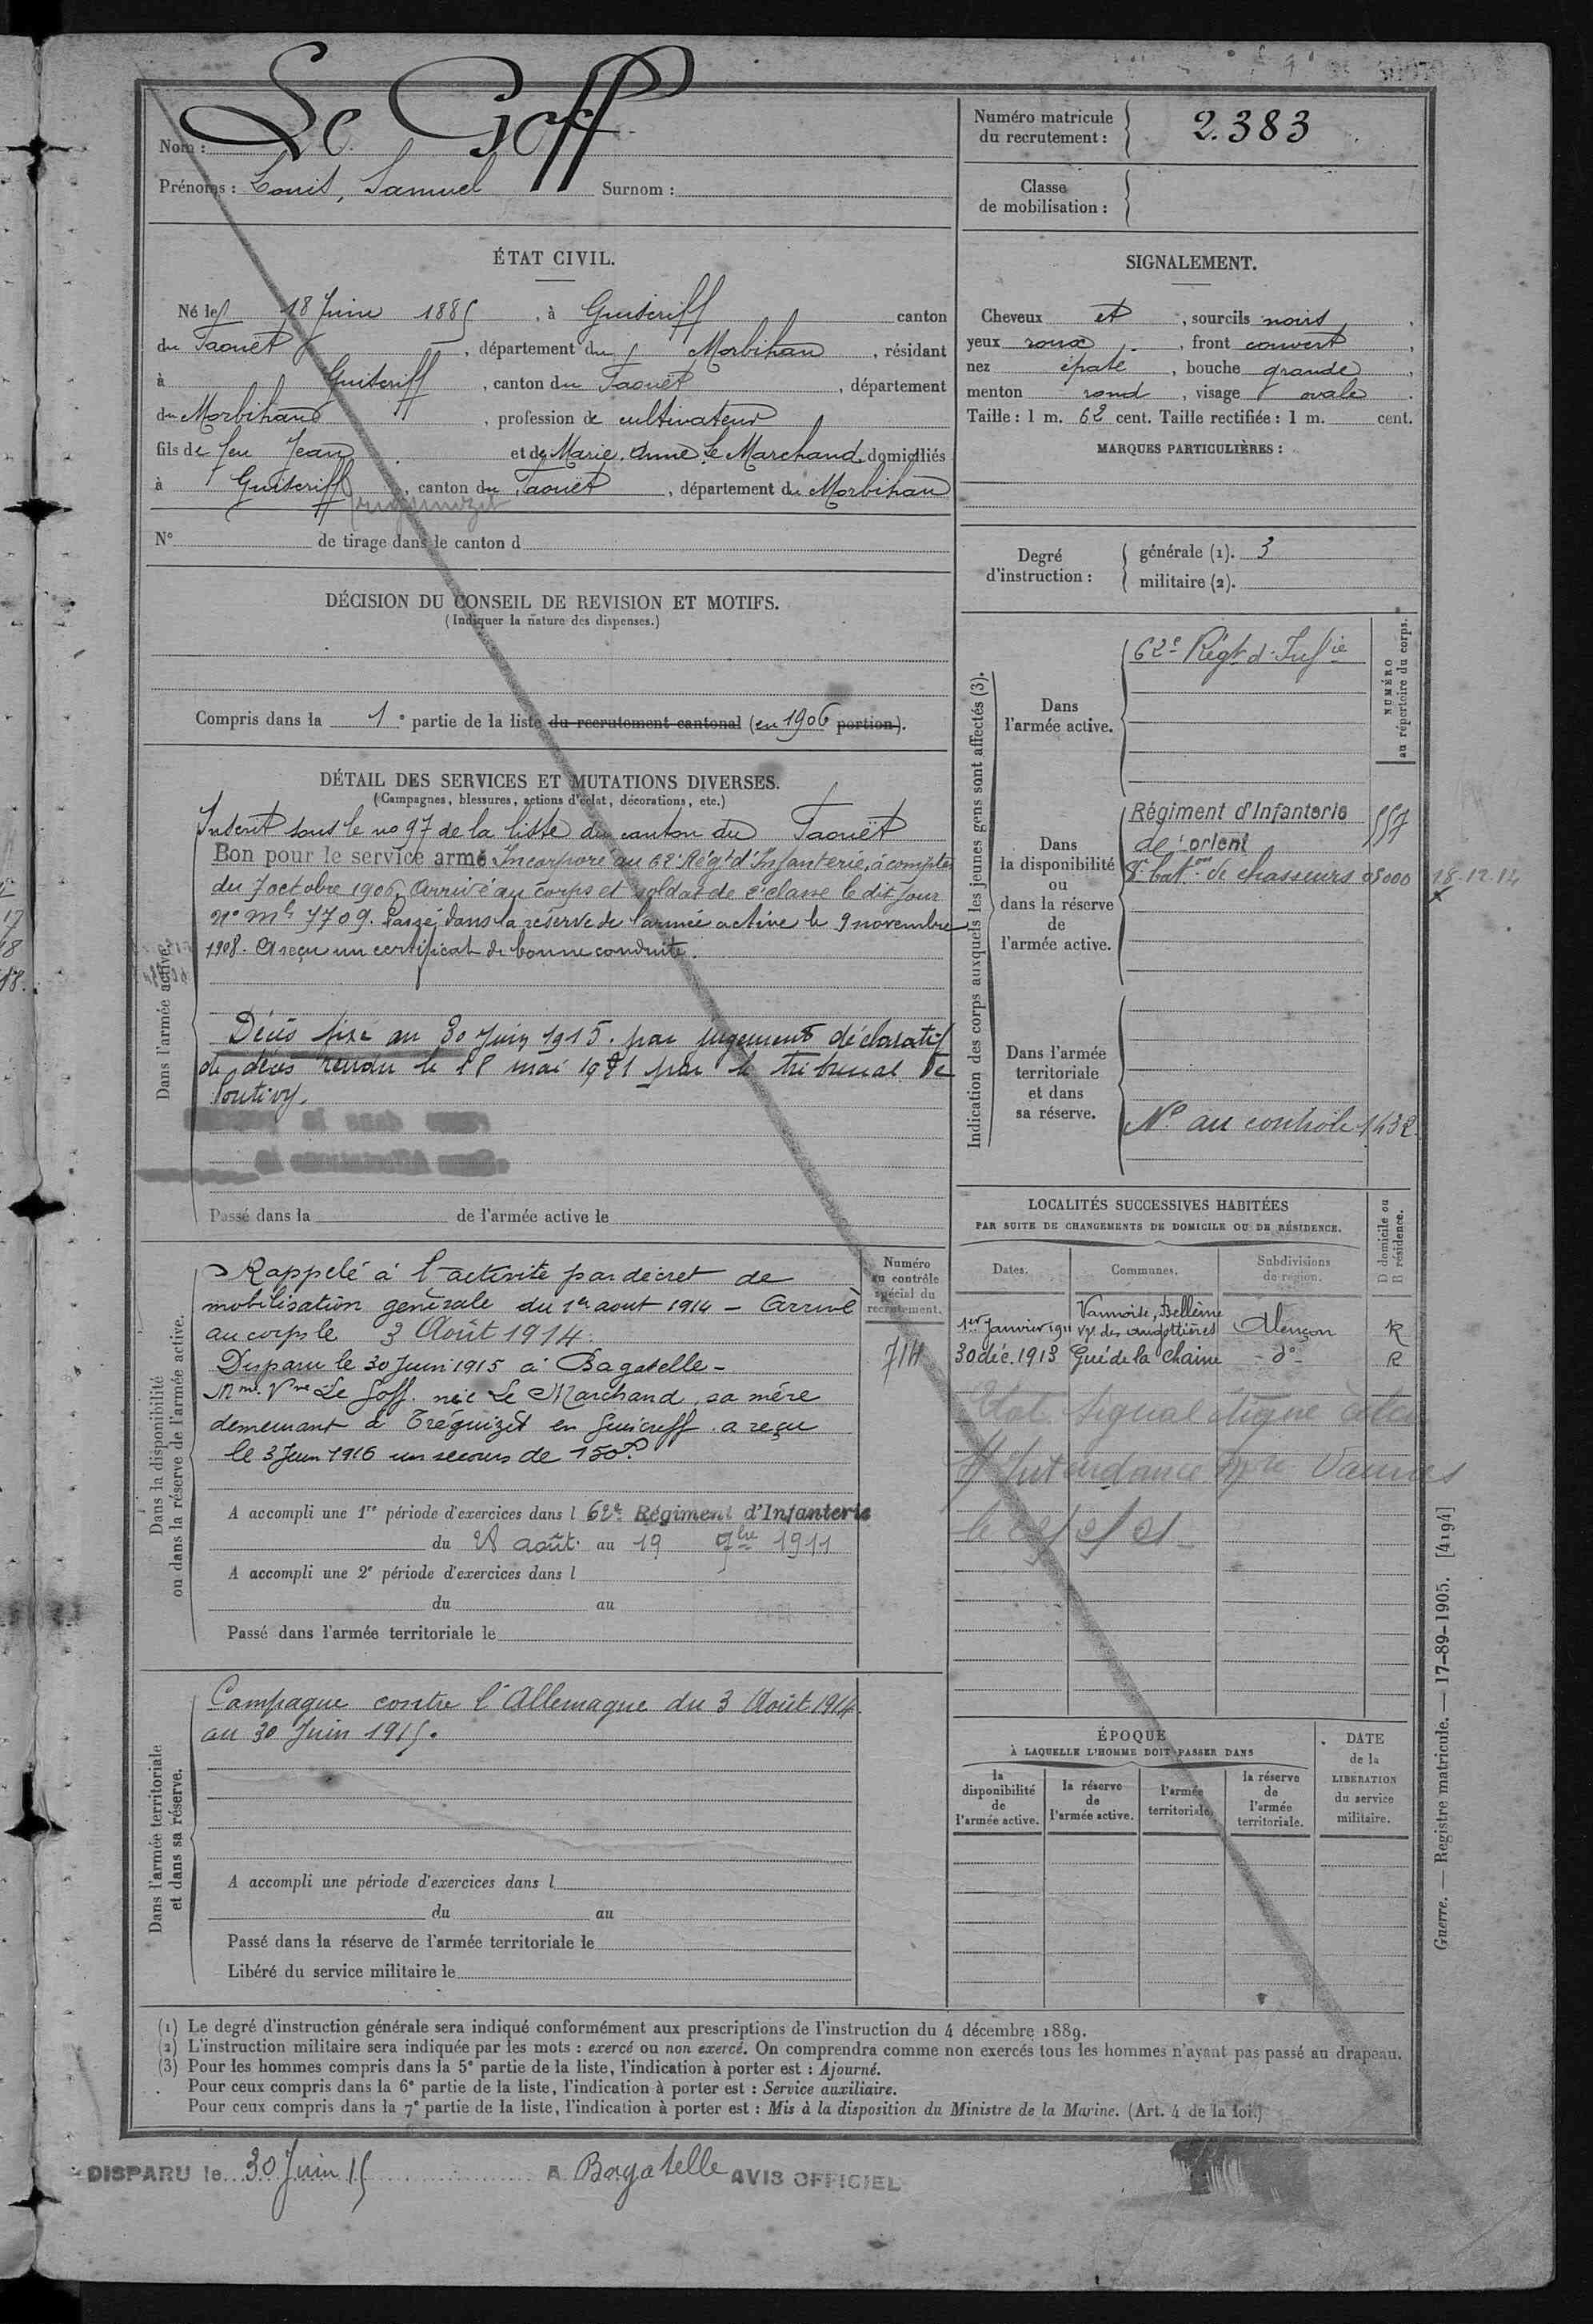 Nom : Le Goff
Prénoms : Louis, Samuel Surnom :
ÉTAT CIVIL.
Né le 18 Juin 1885, à Guiscriff canton
du Faouët, département du Morbihan, résidant
à Guiscriff, canton du Faouët, département
du Morbihan, profession de cultivateur
fils de feu Jean et de Marie Anne Le Marchand domiciliés
à Guiscriff, canton du Faouët, département du Morbihan
N° de tirage dans le canton d
DÉCISION DU CONSEIL DE REVISION ET MOTIFS.
(Indiquer la nature des dispenses.)
Compris dans la 1e partie de la liste du recrutement cantonal (en 1906 portion).
DÉTAIL DES SERVICES ET MUTATIONS DIVERSES.
(Campagnes, blessures, actions d'éclat, décorations, etc.)
Dans l'armée active.
Inscrit sous le no 97 de la liste du canton du Faouët
Bon pour le service armé Incorporé au 62e Régt d'Infanterie, à compter
du 7 octobre 1906. Arrivé au corps et soldat de 2e classe le dit jour
no mle 7709. Passé dans la réserve de l'armée active le 9 novembre
1908. A reçu un certificat de bonne conduite.
Décès fixé au 30 Juin 1915. par jugement déclaratif
de décès rendu le 18 mai 1921 par le tribunal de
Pontivy.
Passé dans la de l'armée active le
Dans la disponibilité
ou dans la réserve de l'armée active.
Numéro
au contrôle
spécial du
recrutement.
714
Rappelé à l'activité par décret de
mobilisation générale du 1er aout 1914 - Arrivé
au corps le 3 Août 1914.
Disparu le 30 Juin 1915 à Bagatelle -
Mme Vve Le Goff née Le Marchand, sa mère
demeurant à Tréguizit en Guiscriff a reçu
le 3 Juin 1916 un secours de 150f.
A accompli une 1re période d'exercices dans l 62e Régiment d'Infanterie
du 28 août au 19 7bre 1911
A accompli une 2e période d'exercices dans l
du au
Passé dans l'armée territoriale le
Dans l'armée territoriale
et dans sa réserve.
Campagne contre l'Allemagne du 3 Août 1914
au 30 Juin 1915.
A accompli une période d'exercices dans l
du au
Passé dans la réserve de l'armée territoriale le
Libéré du service militaire le
Numéro matricule
du recrutement : 2.383
Classe
de mobilisation :
SIGNALEMENT.
Cheveux et, sourcils noirs,
yeux roux, front couvert,
nez épaté, bouche grande,
menton rond, visage ovale.
Taille : 1 m. 62 cent. Taille rectifiée : 1 m. cent.
MARQUES PARTICULIÈRES :
Degré
d'instruction :
générale (1). 3
militaire (2).
Indication des corps auxquels les jeunes gens sont affectés (3).
NUMÉRO
au répertoire du corps.
Dans
l'armée active.
62e Régt d'Infie
Dans
la disponibilité
ou
dans la réserve
de
l'armée active.
Régiment d'Infanterie 557
de Lorient
8e batons de chasseurs 08000 18.12.14
Dans l'armée
territoriale
et dans
sa réserve.
No au contrôle 1432
LOCALITÉS SUCCESSIVES HABITÉES
PAR SUITE DE CHANGEMENTS DE DOMICILE OU DE RÉSIDENCE.
D domicile ou
R résidence.
Dates. Communes. Subdivisions
de région.
1er Janvier 1911 Vaunoise, Bellême vge des Angottières Alençon R
30 déc. 1913 Gué de la Chaine - do - R
Intendance Mre Vannes
ÉPOQUE
À LAQUELLE L'HOMME DOIT PASSER DANS
la
disponibilité
de
l'armée active.
la réserve
de
l'armée active.
l'armée
territoriale.
la réserve
de
l'armée
territoriale.
DATE
de la
LIBÉRATION
du service
militaire.
Guerre. — Registre matricule. — 17-89-1905. [4194]
(1) Le degré d'instruction générale sera indiqué conformément aux prescriptions de l'instruction du 4 décembre 1889.
(2) L'instruction militaire sera indiquée par les mots : exercé ou non exercé. On comprendra comme non exercés tous les hommes n'ayant pas passé au drapeau.
(3) Pour les hommes compris dans la 5e partie de la liste, l'indication à porter est : Ajourné.
Pour ceux compris dans la 6e partie de la liste, l'indication à porter est : Service auxiliaire.
Pour ceux compris dans la 7e partie de la liste, l'indication à porter est : Mis à la disposition du Ministre de la Marine. (Art. 4 de la loi.)
DISPARU le 30 Juin 15 A Bagatelle AVIS OFFICIEL